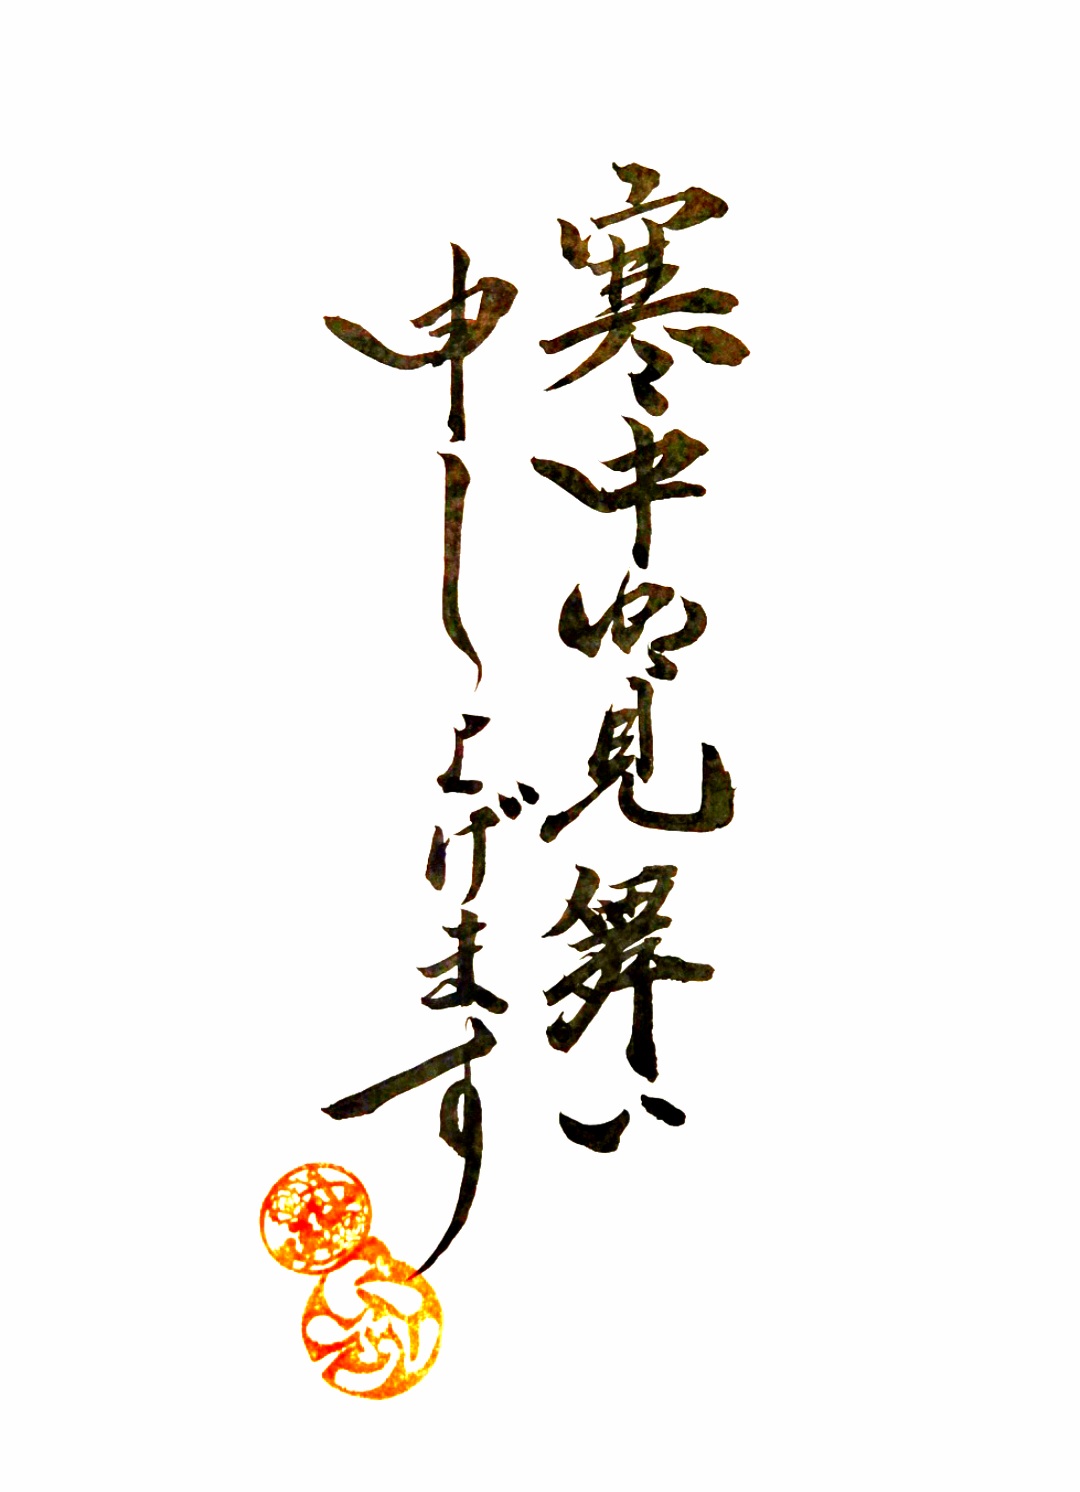 寒中御見舞い
申し上げます